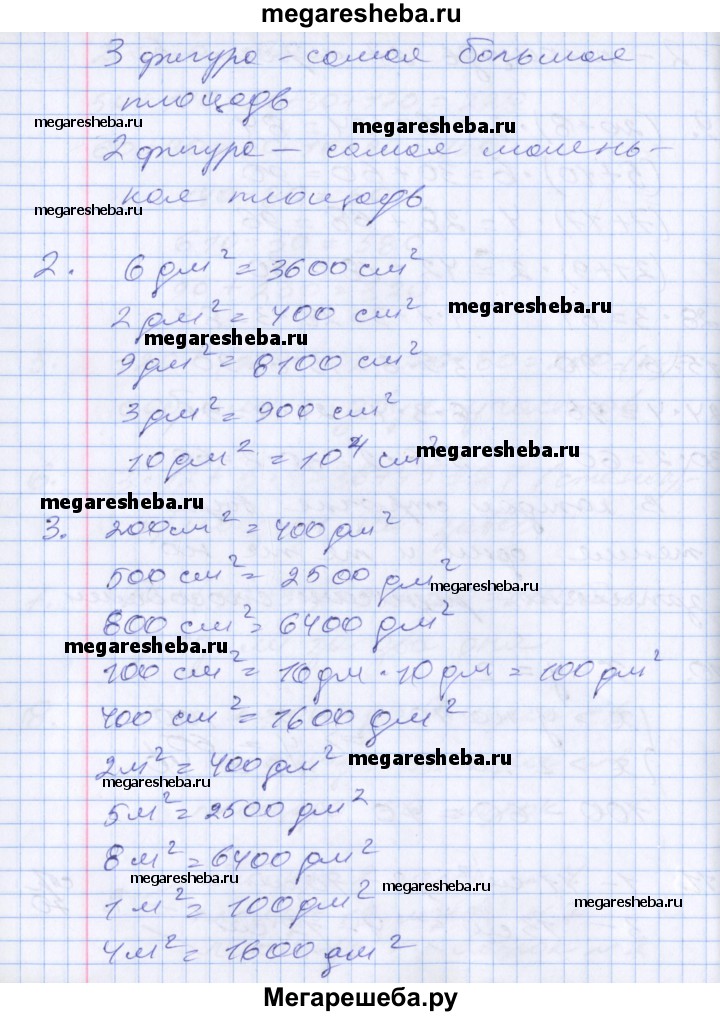 megaresheba.ru
3 фигура – самая большая
площадь
megaresheba.ru
megaresheba.ru
2 фигура – самая малень-
кая площадь
megaresheba.ru
2. 6 дм² = 3600 см²
2 дм² = 400 см²
megaresheba.ru
megaresheba.ru
9 дм² = 8100 см²
3 дм² = 900 см²
10 дм² = 10⁴ см²
megaresheba.ru
megaresheba.ru
3. 200 см² = 400 дм²
500 см² = 2500 дм²
megaresheba.ru
800 см² = 6400 дм²
megaresheba.ru
100 см² = 10 дм · 10 дм = 100 дм²
400 см² = 1600 дм²
2 м² = 400 дм²
megaresheba.ru
megaresheba.ru
5 м² = 2500 дм²
8 м² = 6400 дм²
megaresheba.ru
megaresheba.ru
1 м² = 100 дм²
megaresheba.ru
4 м² = 1600 дм²
Мегарешеба.ру